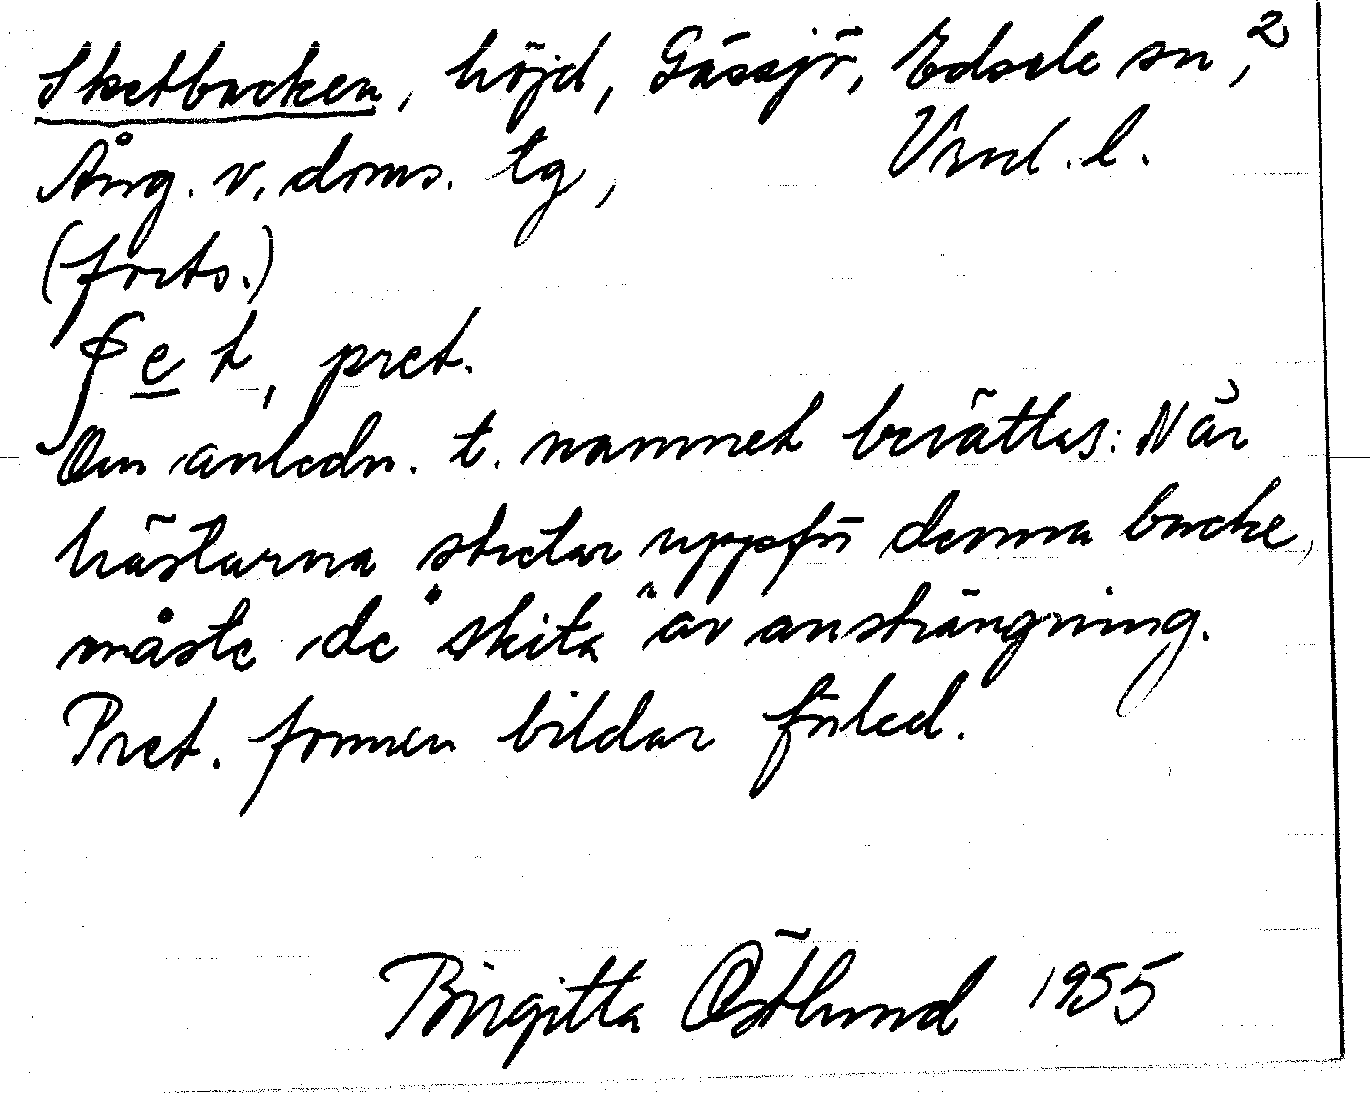 Sketbacken, höjd, Gåssjö, Edsele sn, 2
Ång. v. doms. tg, Vnl. l.
(forts.)
ʃe̲t, pret.
Om anledn. t. namnet berättas: När
hästarna stretar uppför denna backe,
måste de "skita" av ansträngning.
Pret. formen bildar förled.
Birgitta Östlund 1955